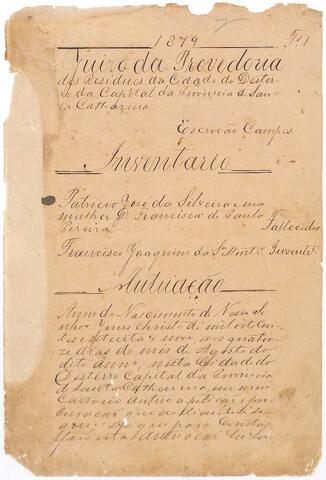 1879
Fl 1
Juizo da Provedoria
dos Residuos da Cidade do Dester-
ro da Capital da Provincia de San-
ta Catharina.
Escrivão Campos
Inventario
Patricio José da Silveira e sua
mulher D. Francisca de Paula
Pereira
Fallecidos
Francisco Joaquim da
Autuação
Anno do Nascimento de Nosso Se-
nhor Jesus Christo de mil oito cen-
tos e setenta e nove aos quator-
ze dias do mes de Agosto do
dito anno, nesta Cidade do
Desterro Capital da Provincia
de Santa Catharina, em meu
Cartorio autuo a petição e pro-
curação que adiante se
que para constar